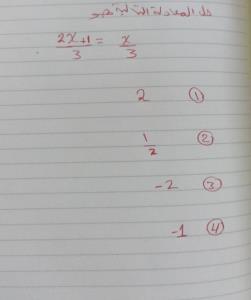 حل المعادلة التالية هو
(2x+1)/3 = x/3
2 ①
1/2 ②
-2 ③
-1 ④